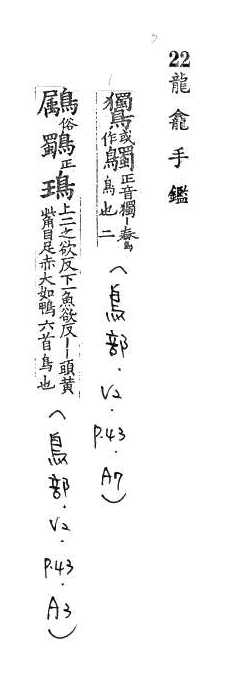 22 龍龕手鑑
鸀或作𪆫正音獨丨舂鳥鳥也二(鳥部.V2.P.43.A7)
鸀俗鸀正鳿上二之欲反下一魚欲反丨丨頭黃觜目足赤大如鴨六首鳥也(鳥部.V2.P.43.A3)